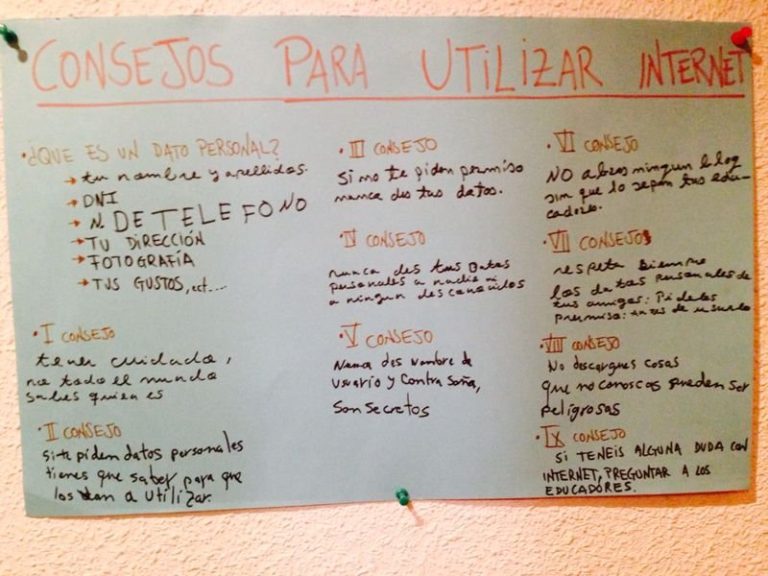 CONSEJOS PARA UTILIZAR INTERNET
• ¿QUE ES UN DATO PERSONAL?
→ tu nombre y apellidos.
→ DNI
→ N. DE TELEFONO
→ TU DIRECCIÓN
→ FOTOGRAFÍA
→ TUS GUSTOS, ect....
• I CONSEJO
tener cuidado,
no todo el mundo
sabes quien es
• II CONSEJO
si te piden datos personales
tienes que saber para que
los van a utilizar.
• III CONSEJO
Si no te piden permiso
nunca des tus datos.
• IV CONSEJO
nunca des tus datos
personales a nadie ni
a ningun desconocidos
• V CONSEJO
Nunca des nombre de
usuario y contra seña,
son secretos
• VI CONSEJO
NO abras ningun blog
sin que lo sepan tus edu-
cadores.
• VII CONSEJOS
respeta siempre
los datos personales de
tus amigos: Pideles
permiso: antes de usarlo
• VIII CONSEJO
No descargues cosas
que no conoscas pueden ser
peligrosas
• IX CONSEJO
SI TENEIS ALGUNA DUDA CON
INTERNET, PREGUNTAR A LOS
EDUCADORES.